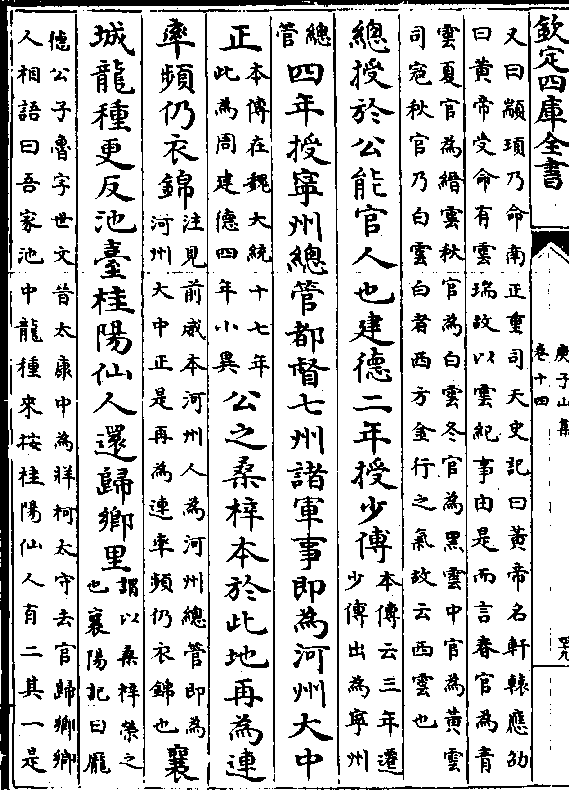 欽定四庫全書
庾子山集
卷十四
罕九
又曰顓頊乃命南正重司天史記曰黃帝名軒轅應劭
曰黃帝受命有雲瑞故以雲紀事由是而言春官為青
雲夏官為縉雲秋官為白雲冬官為黑雲中官為黃雲
司寇秋官乃白雲白者西方金行之氣故云西雲也
總授於公能官人也建德二年授少傅本傳云三年遷少傅出為寧州
總管四年授寧州總管都督七州諸軍事即為河州大中
正本傳在魏大統十七年此為周建德四年小異公之桑梓本於此地再為連
率頻仍衣錦注見前威本河州人為河州總管即為河州大中正是再為連率頻仍衣錦也襄
城龍種更反池臺桂陽仙人還歸鄉里謂以桑梓榮之也襄陽記曰龐
德公子魯字世文昔太康中為牂柯太守去官歸鄉鄉
人相語曰吾家池中龍種來按桂陽仙人有二其一是